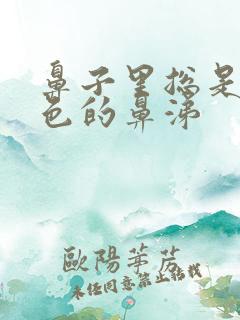 鼻子里总是
色的鼻涕
歐陽華芳
未经同意禁止转载